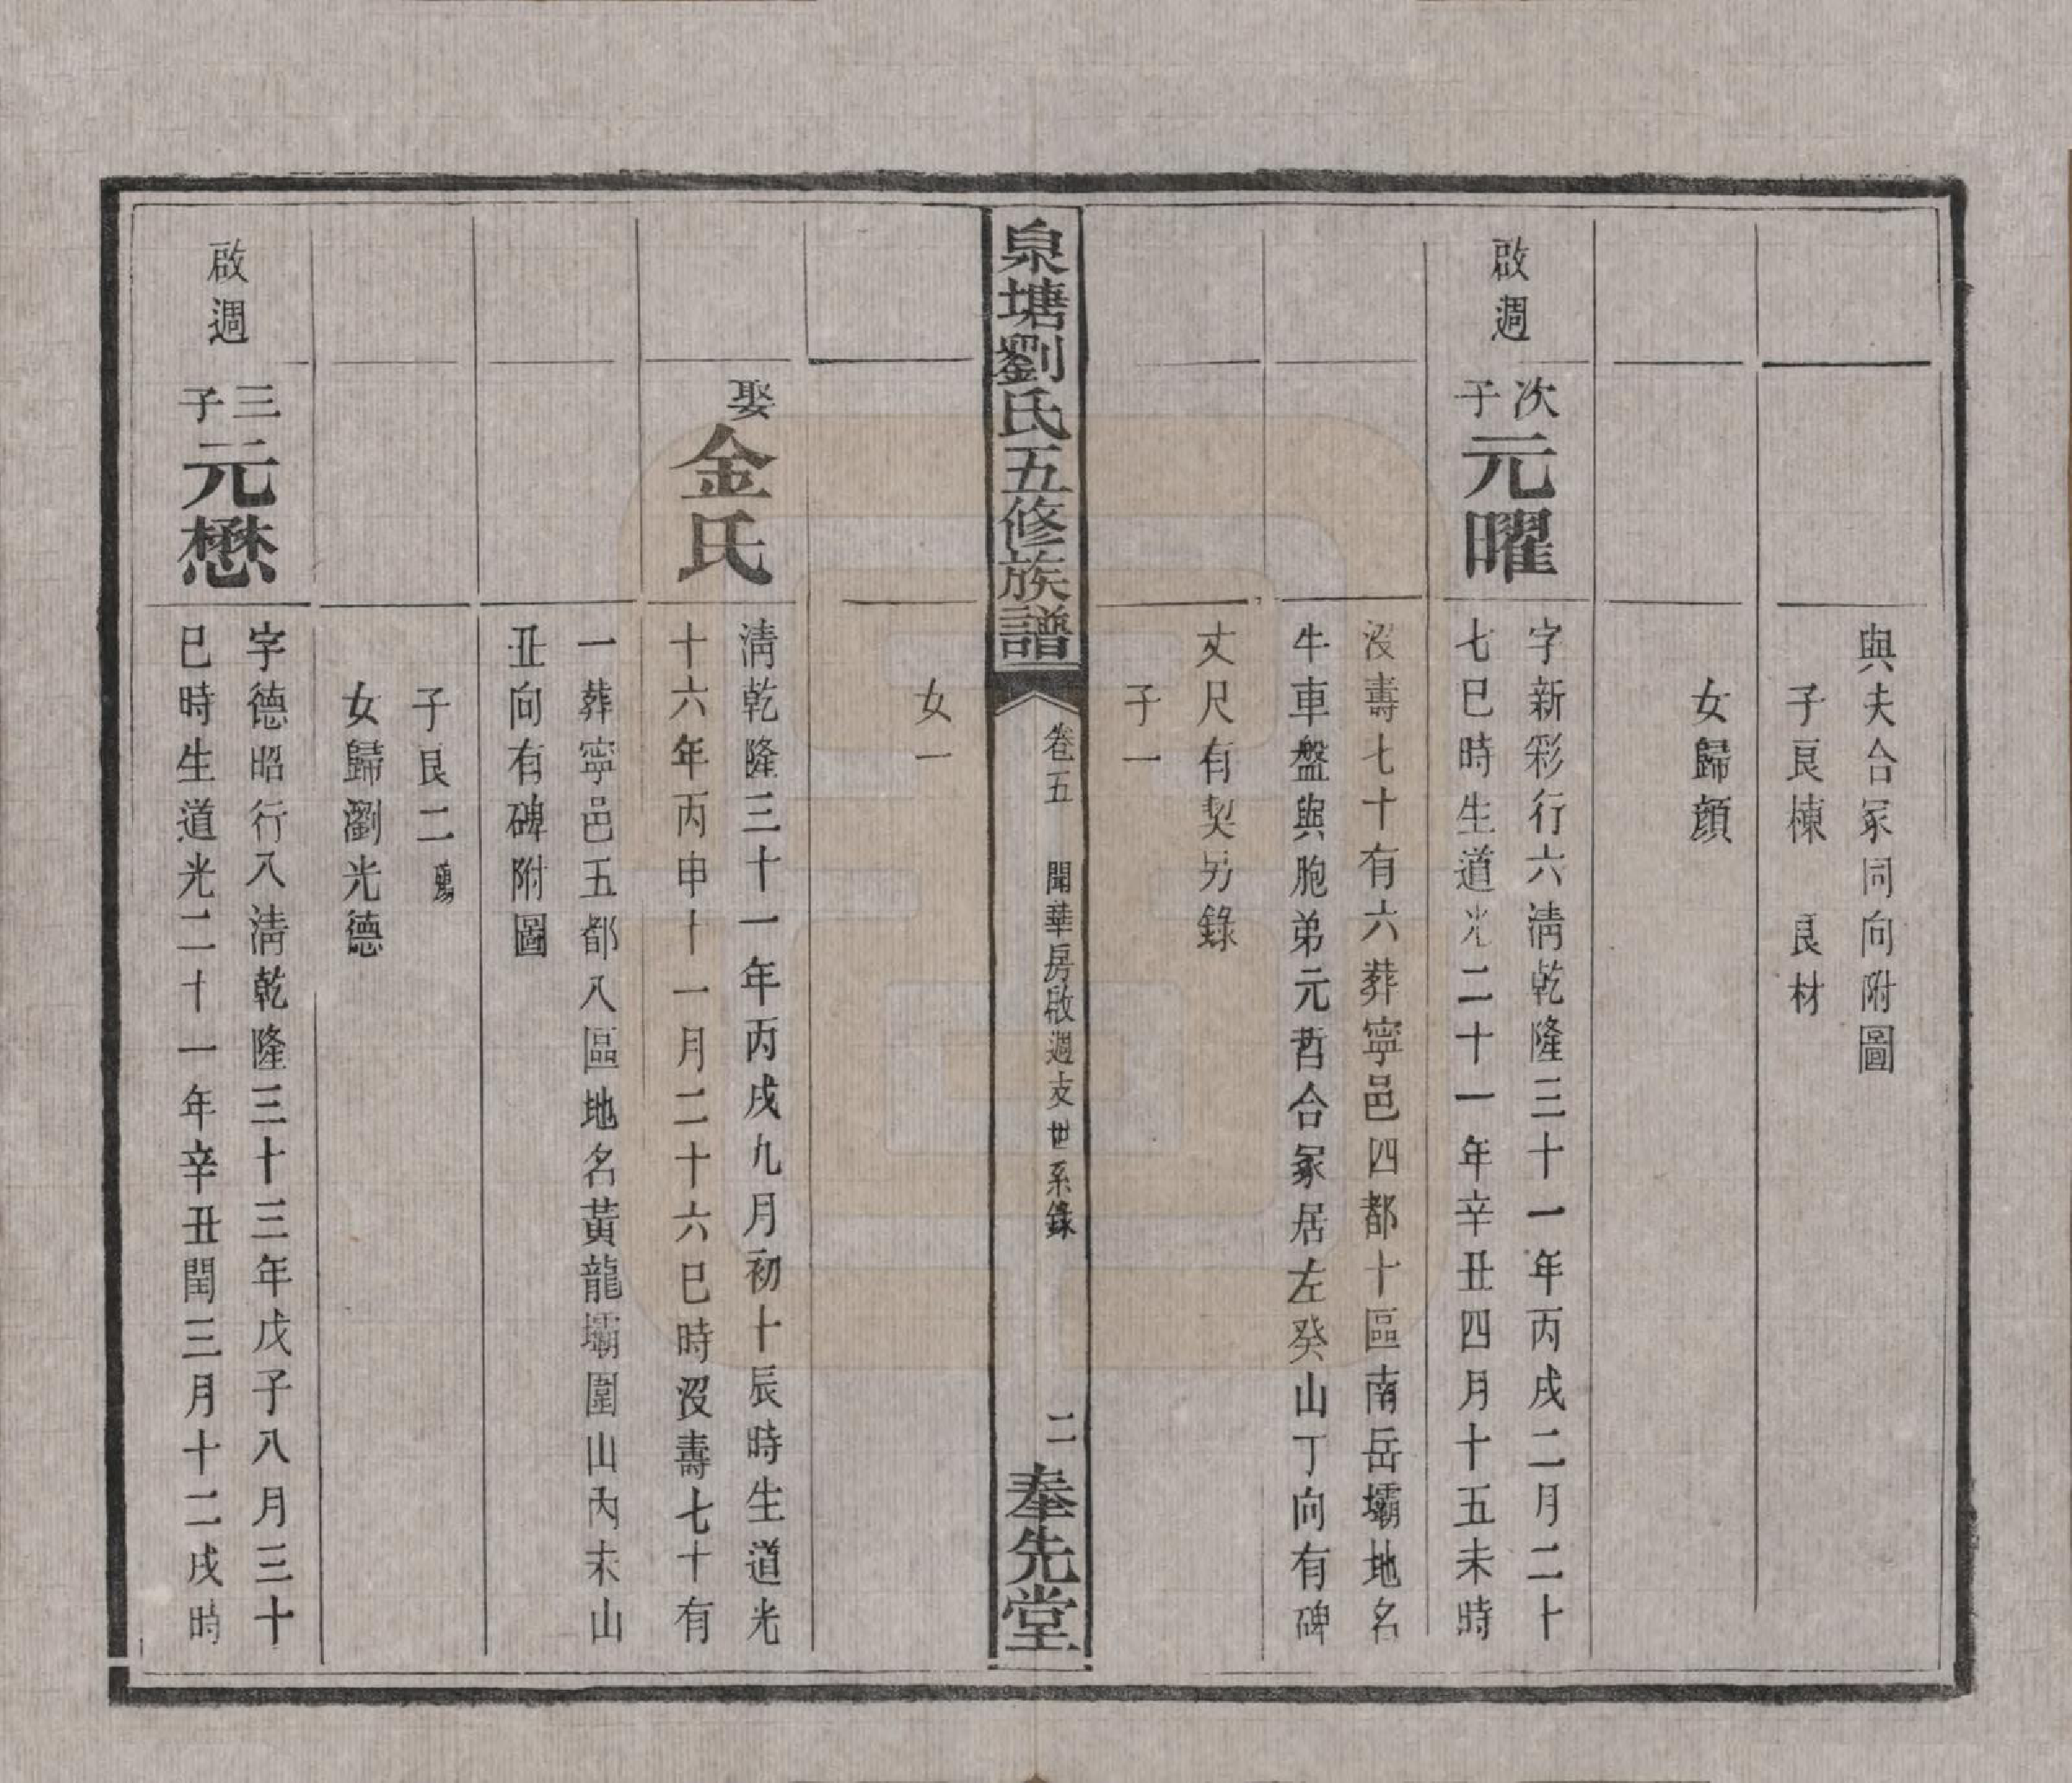 與夫合冢同向附圖
子良棟　良材
女歸顏
啟週
次子
元曜
字新彩行六淸乾隆三十一年丙戌二月二十
七巳時生道光二十一年辛丑四月十五未時
沒壽七十有六葬寧邑四都十區南岳壩地名
牛車盤與胞弟元哲合冢居左癸山丁向有碑
丈尺有契另錄
子一
泉塘劉氏五修族譜
卷五
開華房啟週支世系錄
二
奉先堂
女一
娶
金氏
淸乾隆三十一年丙戌九月初十辰時生道光
十六年丙申十一月二十六巳時沒壽七十有
一葬寧邑五都八區地名黃龍壩圍山內未山
丑向有碑附圖
子良二
女歸瀏光德
啟週
三子
元懋
字德昭行八淸乾隆三十三年戊子八月三十
巳時生道光二十一年辛丑閏三月十二戌時